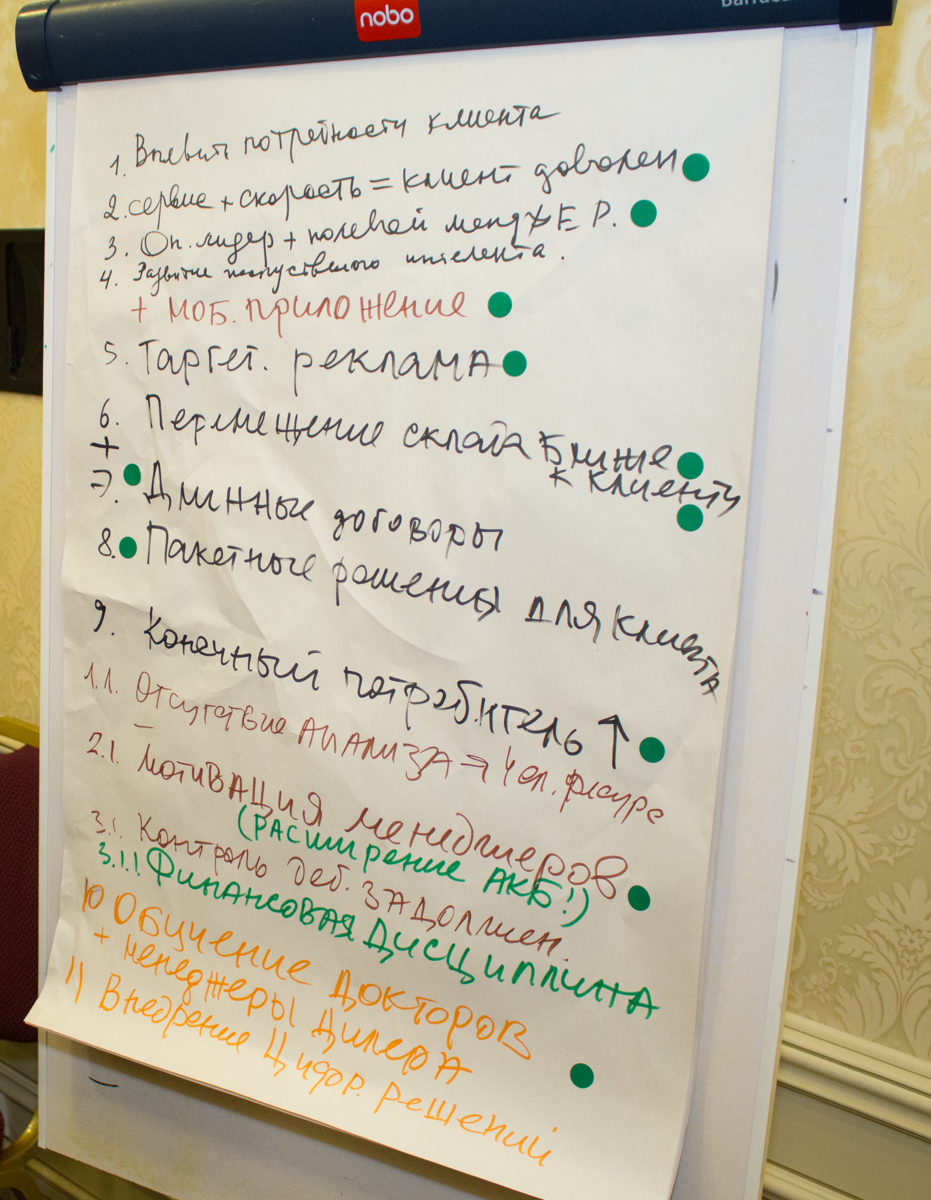 nobo
1. Выевить потребности клиента
2. сервис + скорость = клиент доволен
3. Оп. лидер + полевой менджЕР.
4. Развитие исскуственого интелекта.
+ моб. приложение
5. Таргет. реклама
6. Перемещение склада Ближе
к клиенту
+
7. Длинные договоры
8. Пакетные решения для клиента
9. Конечный потребитель ↑
1.1. Отсутствие Анализа → Чел. ресурс
2.1. Мотивация менеджеров
(расширение АКБ!)
3.1. Контроль деб. задолжен.
3.1.1 Финансовая дисциплина
10 Обучение докторов
+ менеджеры дилера
11) Внедрение Цифр. решений